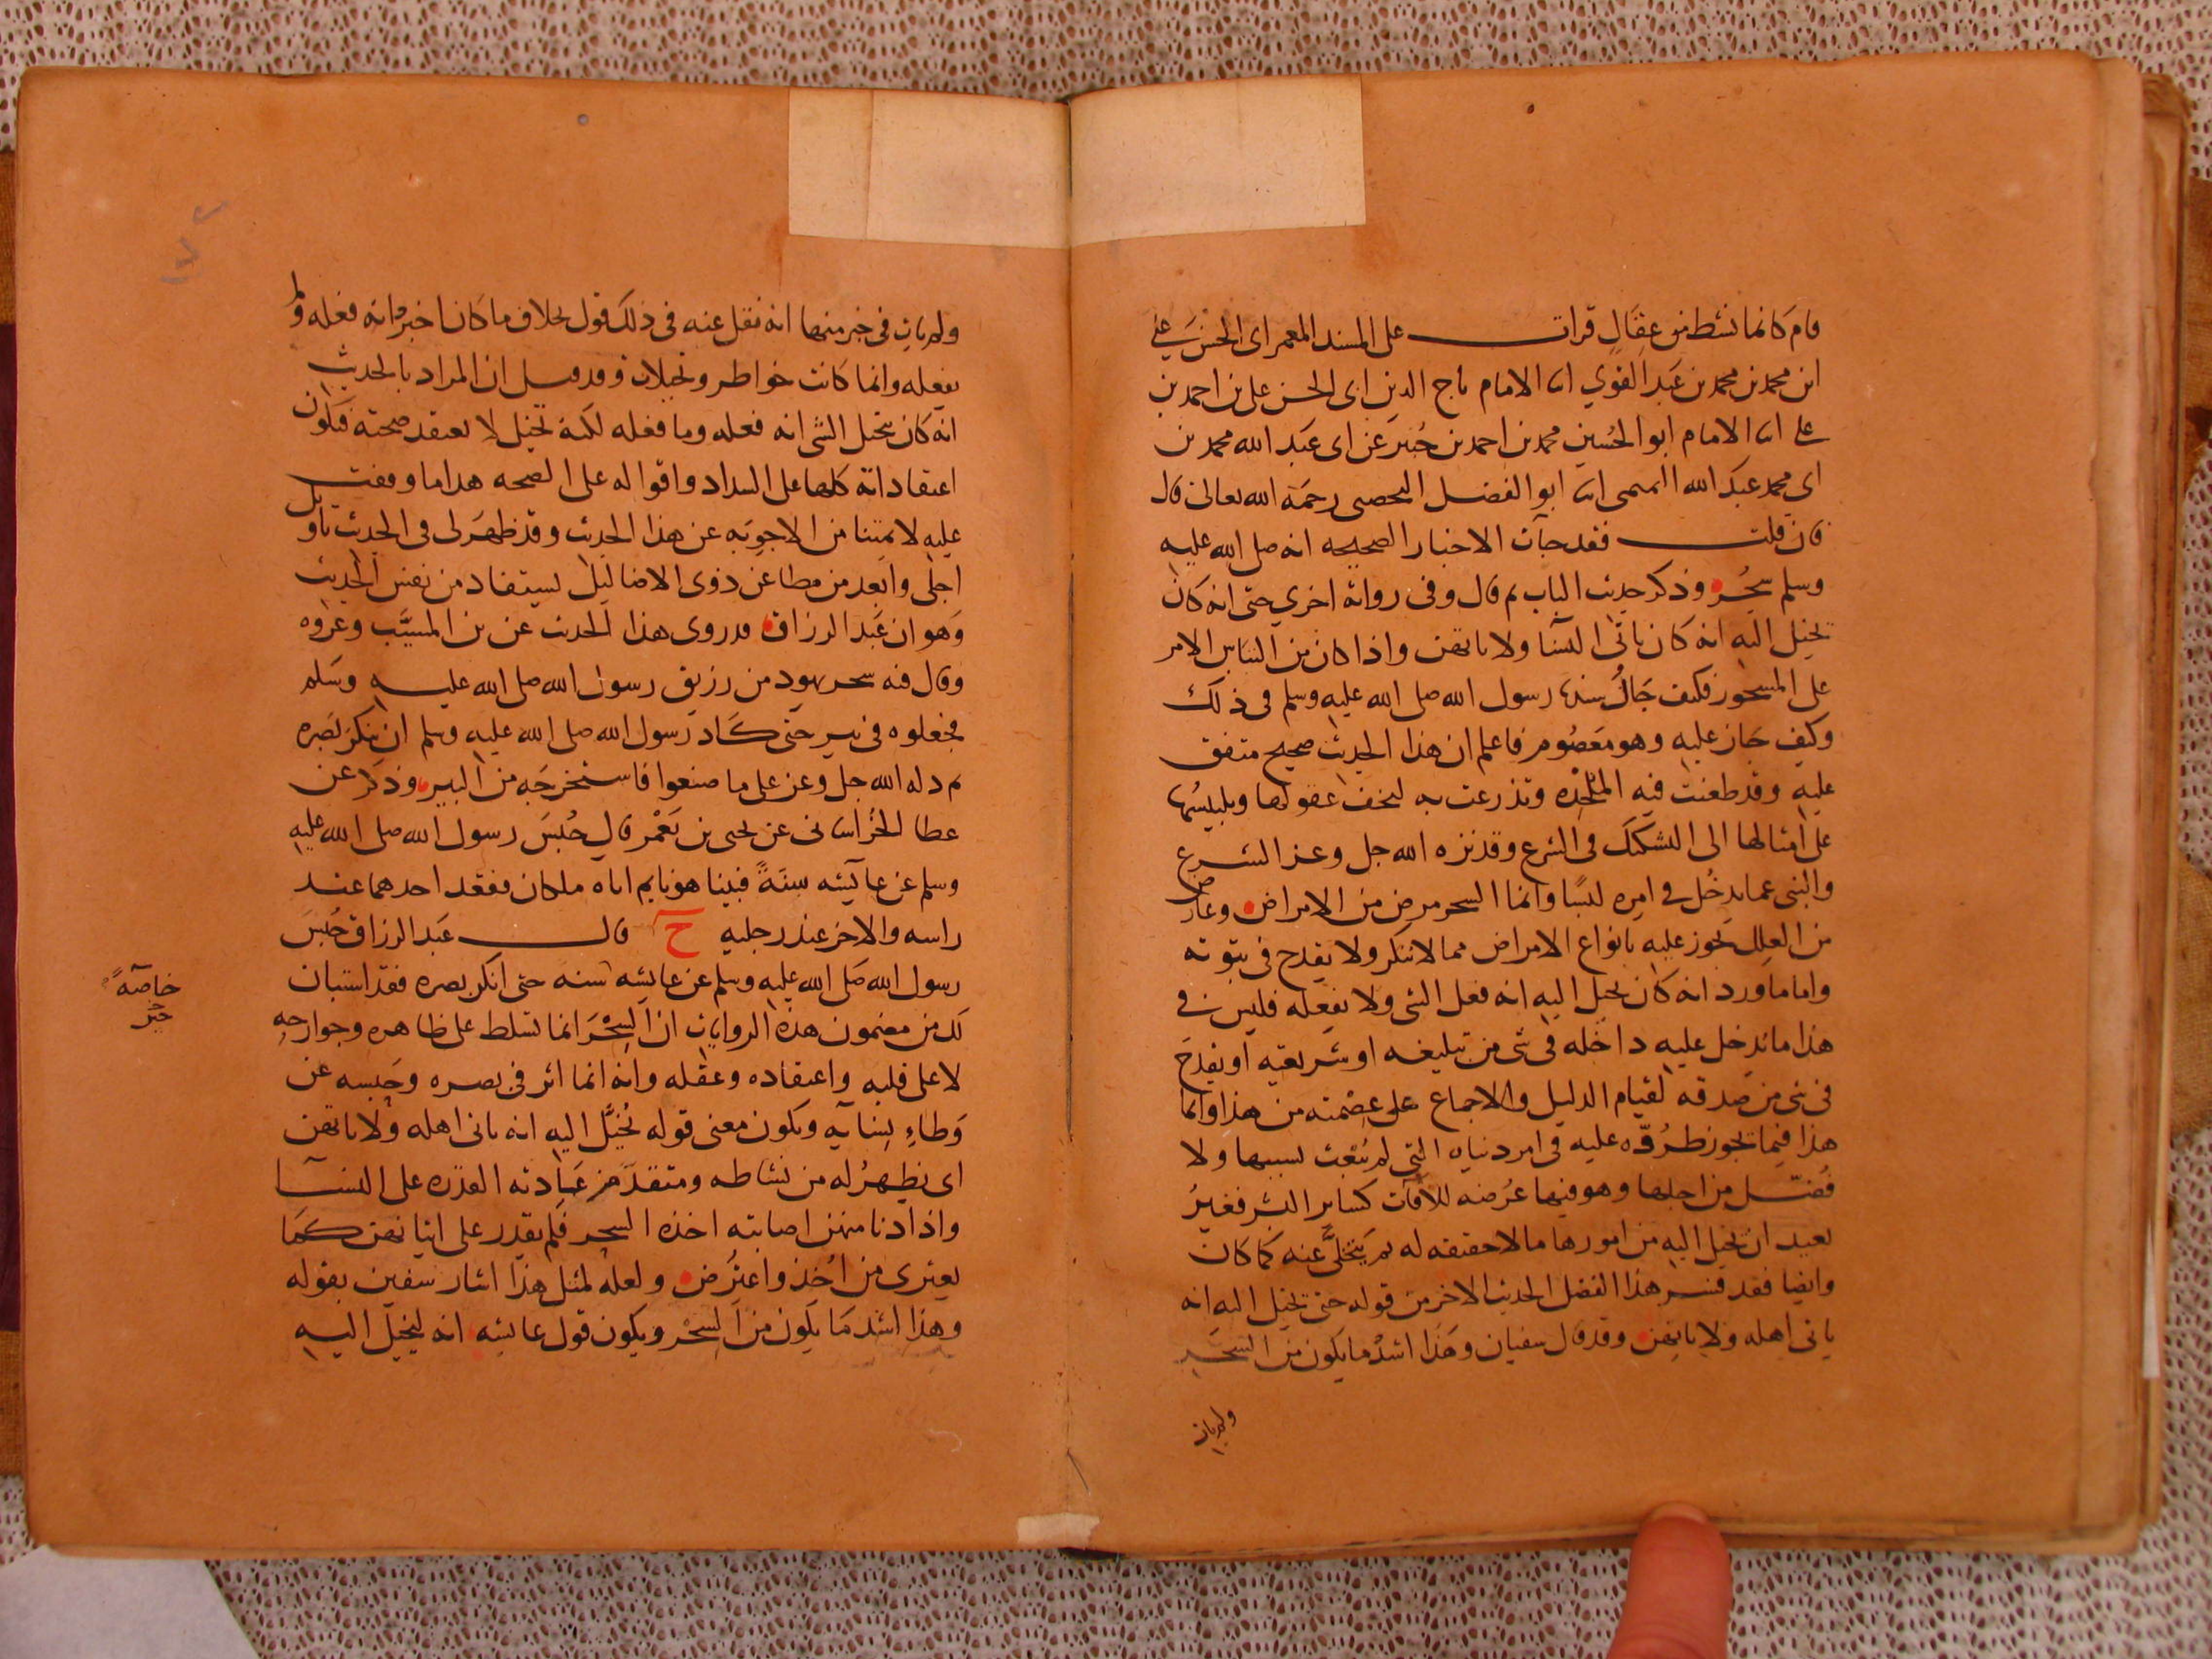 قام كانما نشط من عقال قرات على المسند المعمر ابى الحسن على
ابن محمد بن محمد بن عبد القوي انا الامام تاج الدين ابى الحسن على بن احمد بن
على انا الامام ابو الحسين محمد بن احمد بن جُبير عن ابى عبد الله محمد بن
ابى محمد عبد الله التميمى انا ابو الفضل اليحصبى رحمة الله تعالى قال
فان قلت فقد جآت الاخبار الصحيحه انه صلى الله عليه
وسلم سُحِر وذكر حديث الباب ثم قال وفى رواية اخرى حتى انه كان
يخيل اليه انه كان ياتى النسآ ولا ياتيهن واذا كان من التباس الامر
على المسحور فكيف حَالُ سيدنا رسول الله صلى الله عليه وسلم فى ذلك
وكيف جاز عليه وهو معصُوم فاعلم ان هذا الحديث صحيح متفق
عليه وقد طعنت فيه الملحدة وتذرعت به لسخف عقولها وتلبيسُها
على امثالها الى التشكيك فى الشرع وقد نزه الله جل وعز الشرع
والنبى عما يدخُل فى امره لبسًا وانما السحر مرض من الامراض وعارض
من العلل يجوز عليه بانواع الامراض مما لا ينكر ولا يقدح فى نبوته
واما ما ورد انه كان يخيل اليه انه فعل الشى ولا يفعله فليس فى
هذا ما يدخل عليه داخله فى شى من تبليغه او شريعته او يقدح
فى شى من صدقه لقيام الدليل والاجماع على عصمته من هذا وانما
هذا فيما يجوز طُروّه عليه فى امر دنياه التى لم يُبعث لسببها ولا
فُضّل من اجلها وهو فيها عُرضه للآفات كساير البشر فغيرُ
بعيد ان يخيل اليه من امورها ما لا حقيقه له ثم يتجلَّى عنه كما كان
وايضا فقد فسر هذا الفصل الحديث الاخر من قوله حتى يخيل اليه انه
ياتى اهله ولا ياتيهن وقد قال سفيان وهذا اشدُّ ما يكون من السحر
ولم يات
ولم يات فى خبر منها انه نقل عنه فى ذلك قول بخلاف ما كان اخبر انه فعله ولم
يفعله وانما كانت خواطر وتخيلات وقد قيل ان المراد بالحديث
انه كان يتخيل الشى انه فعله وما فعله لكنه تخيل لا يعتقد صحته فتكون
اعتقاداته كلها على السداد واقواله على الصحه هذا ما وقفت
عليه لايمتنا من الاجوبه عن هذا الحديث وقد ظهر لى فى الحديث تاويل
اجلى وابعد من مطاعن ذوى الاضاليل يستفاد من نفس الحديث
وهو ان عبد الرزاق قد روى هذا الحديث عن بن المسيَّب وعروه
وقال فيه سحر يهود من رزيق رسول الله صلى الله عليه وسلم
فجعلوه فى بير حتى كاد رسول الله صلى الله عليه وسلم ان ينكر بصره
ثم دله الله جل وعز على ما صنعوا فاستخرجه من البير وذكر عن
عطا الخُراسانى عن يحيى بن يَعْمر قال حُبس رسول الله صلى الله عليه
وسلم عن عآيشه سنةً فبينا هو نايم اتاه ملكان فقعد احدهما عند
راسه والاخر عند رجليه ح قال عبد الرزاق حُبس
رسول الله صلى الله عليه وسلم عن عايشه سنه حتى انكر بصره فقد استبان
لك من مضمون هذه الروايات ان السِحْر انما تسلط على ظاهره وجوارحه
لا على قلبه واعتقاده وعقله وانه انما اثر فى بصره وحَبسه عن
وَطاءِ نسآيه ويكون معنى قوله يُخيَّل اليه انه ياتى اهله ولا ياتيهن
اى يظهرُ له من نشاطه ومتقدَّم عادته القدره على النسآ
واذا دنا منهن اصابته اخذه السحر فلم يقدر على اتيانهن كما
يعترى من اُخذ واعتُرض ولعله لمثل هذا اشار سفين بقوله
وهذا اشد مَا يكون من السِحْر ويكون قول عايشه انه ليخيل اليه
خاصّةً